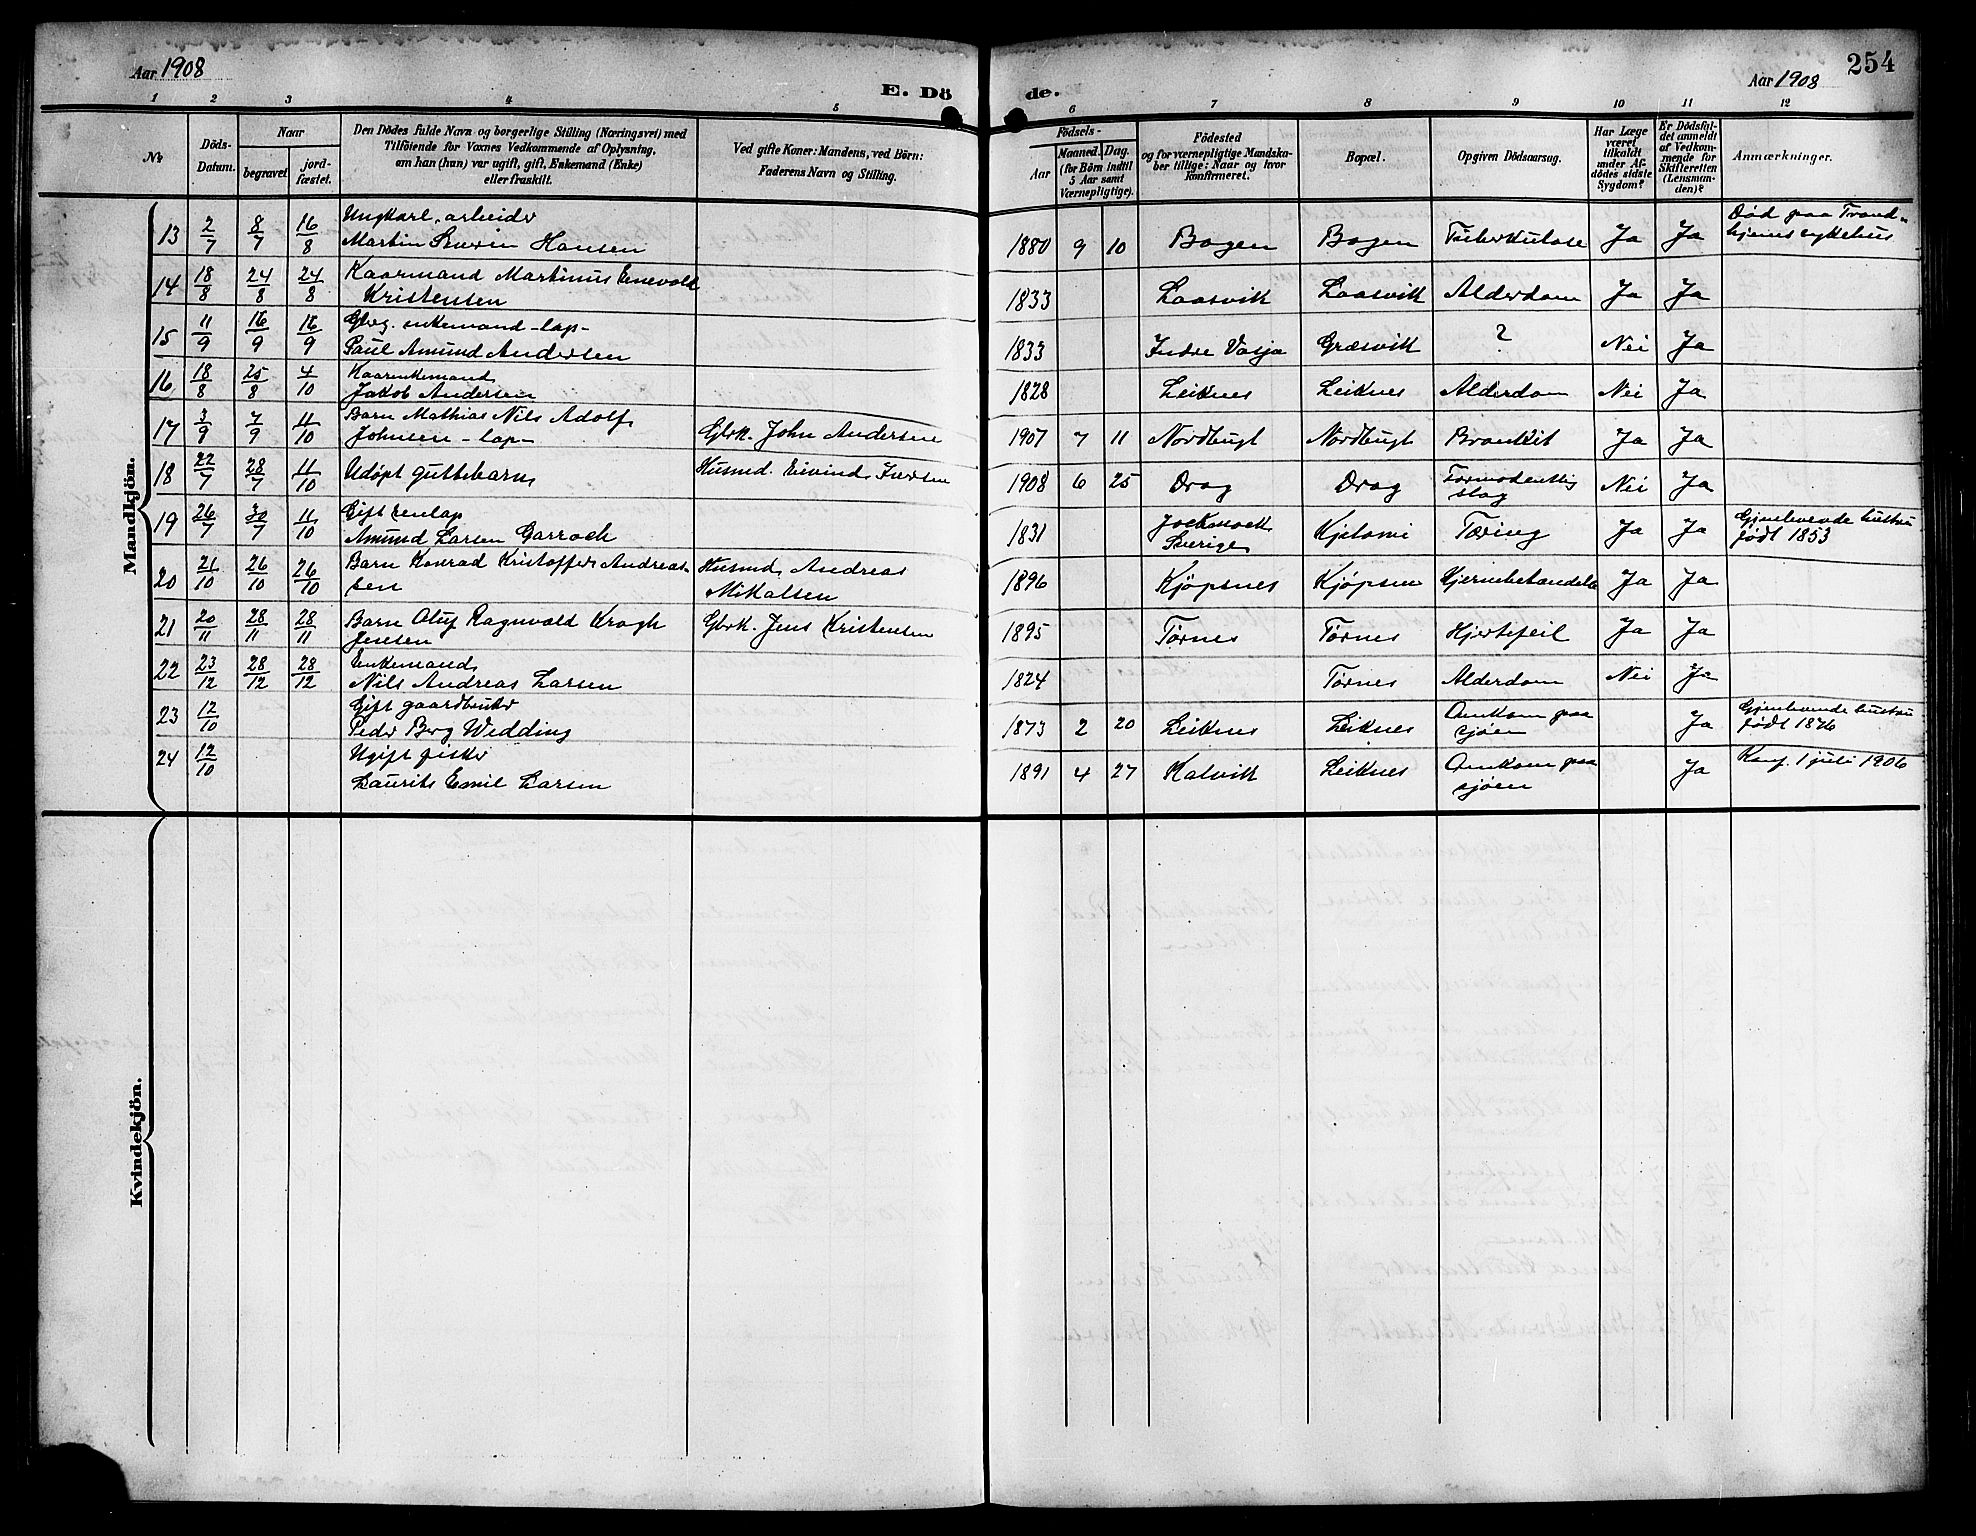 Aar 1908
E. Dö
de.
Aar 1908
254
1 2 3 4 5 6 7 8 9 10 11 12
№
Döds-
Datum.
Naar
begravet
jord-
fæstet.
Den Dödes fulde Navn og borgerlige Stilling (Næringsvei) med
Tilföiende for Voxnes Vedkommende af Oplysning,
om han (hun) var ugift, gift, Enkemand (Enke)
eller fraskilt.
Ved gifte Koner: Mandens, ved Börn:
Faderens Navn og Stilling.
Födsels-
Aar
Maaned. Dag.
(for Börn indtil
5 Aar samt
Værnepligtige).
Födested
og for værnepligtige Mandska-
ber tillige: Naar og hvor
konfirmeret.
Bopæl.
Opgiven Dödsaarsag.
Har Læge
været
tilkaldt
under Af-
dödes sidste
Sygdom?
Er Dödsfal-
det anmeldt
af Vedkom-
mende for
Skifteretten
(Lensman-
den)?
Anmærkninger.
Mandkjön.
13 2/7 8/7 16/8 Ungkarl, arbeider
Martin Severin Hansen 1880 9 10 Bogen Bogen Tuberkulose Ja Ja Död paa Trond-
hjems sykehus
14 18/8 24/8 24/8 Kaarmand Martinus Enevold
Kristensen 1833 Laasvik Laasvik Alderdom Ja Ja
15 11/9 16/9 16/9 Gbrg. enkemand - lap -
Paul Amund Andersen 1833 Indre Græsvik ? Nei Ja
16 18/8 25/8 4/10 Kaarenkemand
Jakob Andersen 1828 Leiknes Leiknes Alderdom Nei Ja
17 3/9 7/9 11/10 Barn Mathias Nils Adolf
Johnsen - lap - Gbrk. John Andersen 1907 7 11 Nordbugt Nordbugt Bronkit Ja Ja
18 22/7 28/7 11/10 Udöpt guttebarn Husmd. Eivind Iversen 1908 6 25 Drag Drag Nei Ja
19 26/7 30/7 11/10 Gift renlap
Amund Larsen Garroch 1831 Jockmock
Sverige Tæring Ja Ja Gjenlevende hustru
födt 1853
20 21/10 26/10 26/10 Barn Konrad Kristoffer Andreas-
sen Husmd. Andreas
Mikalsen 1896 Kjöpsnes Kjöpsnes Ja Ja
21 20/11 28/11 28/11 Barn Oluf Ragnvald Krogh
Jensen Gbrk. Jens Kristensen 1895 Tørnes Tørnes Hjertefeil Ja Ja
22 23/12 28/12 28/12 Enkemand
Nils Andreas Larsen 1824 Tørnes Alderdom Nei Ja
23 12/10 Gift gaardbruker
Peder Berg Wedding 1873 2 20 Leiknes Leiknes Omkom paa
sjöen Ja Gjenlevende hustru
födt 1876
24 12/10 Ugift fisker
Laurits Emil Larsen 1891 4 27 Kalvik Leiknes Omkom paa
sjöen Ja Konf. 1 juli 1906
Kvindekjön.